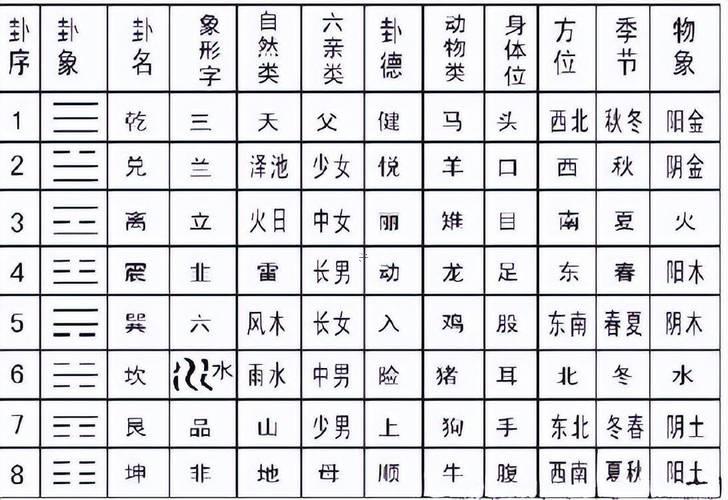 卦序 卦象 卦名 象形字 自然类 六亲类 卦德 动物类 身体位 方位 季节 物象
1 ☰ 乾 三 天 父 健 马 头 西北 秋冬 阳金
2 兑 兰 泽池 少女 悦 羊 口 西 秋 阴金
3 离 立 火日 中女 丽 雉 目 南 夏 火
4 震 韭 雷 长男 动 龙 足 东 春 阳木
5 巽 六 风木 长女 入 鸡 股 东南 春夏 阴木
6 坎 水 雨水 中男 险 猪 耳 北 冬 水
7 艮 品 山 少男 上 狗 手 东北 冬春 阴土
8 坤 非 地 母 顺 牛 腹 西南 夏秋 阳土